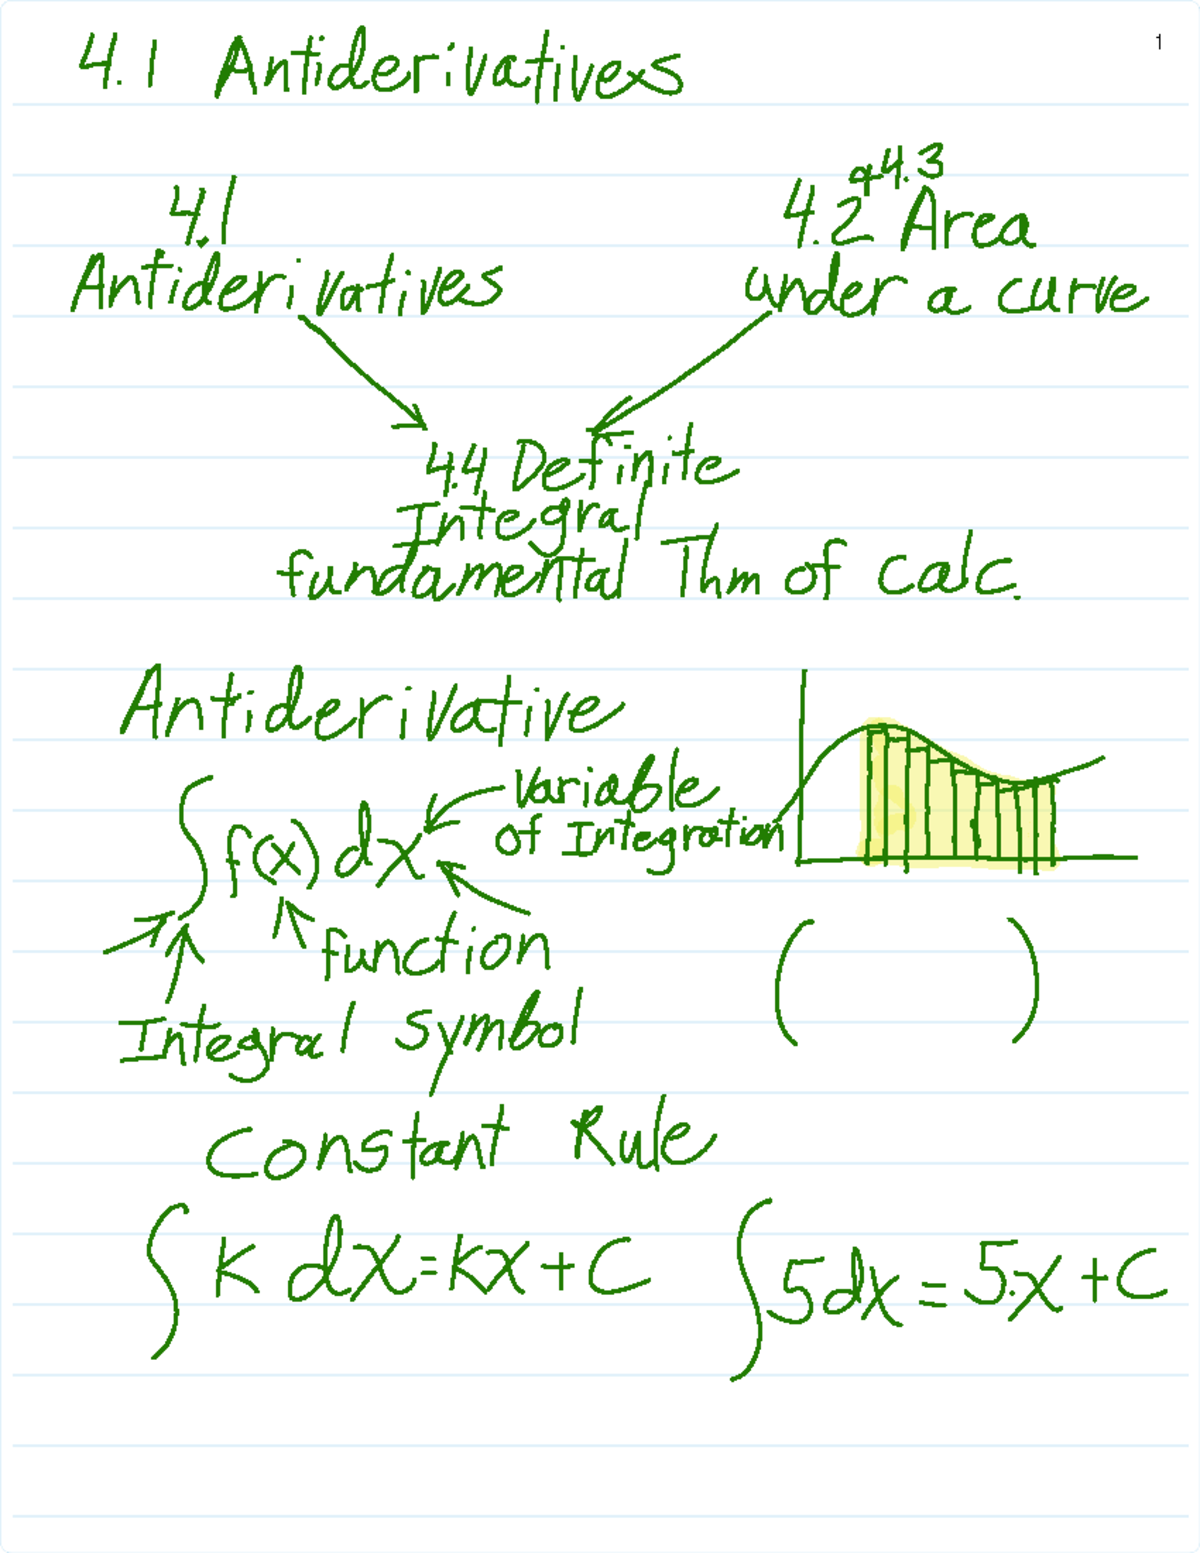 1
4.1 Antiderivatives
4.1
Antiderivatives
4.2 + 4.3 Area
under a curve
4.4 Definite
Integral
fundamental Thm of Calc.
Antiderivative
∫ f(x) dx
Variable
of Integration
function
Integral Symbol
( )
Constant Rule
∫ K dx = Kx + C
∫ 5dx = 5·x + C